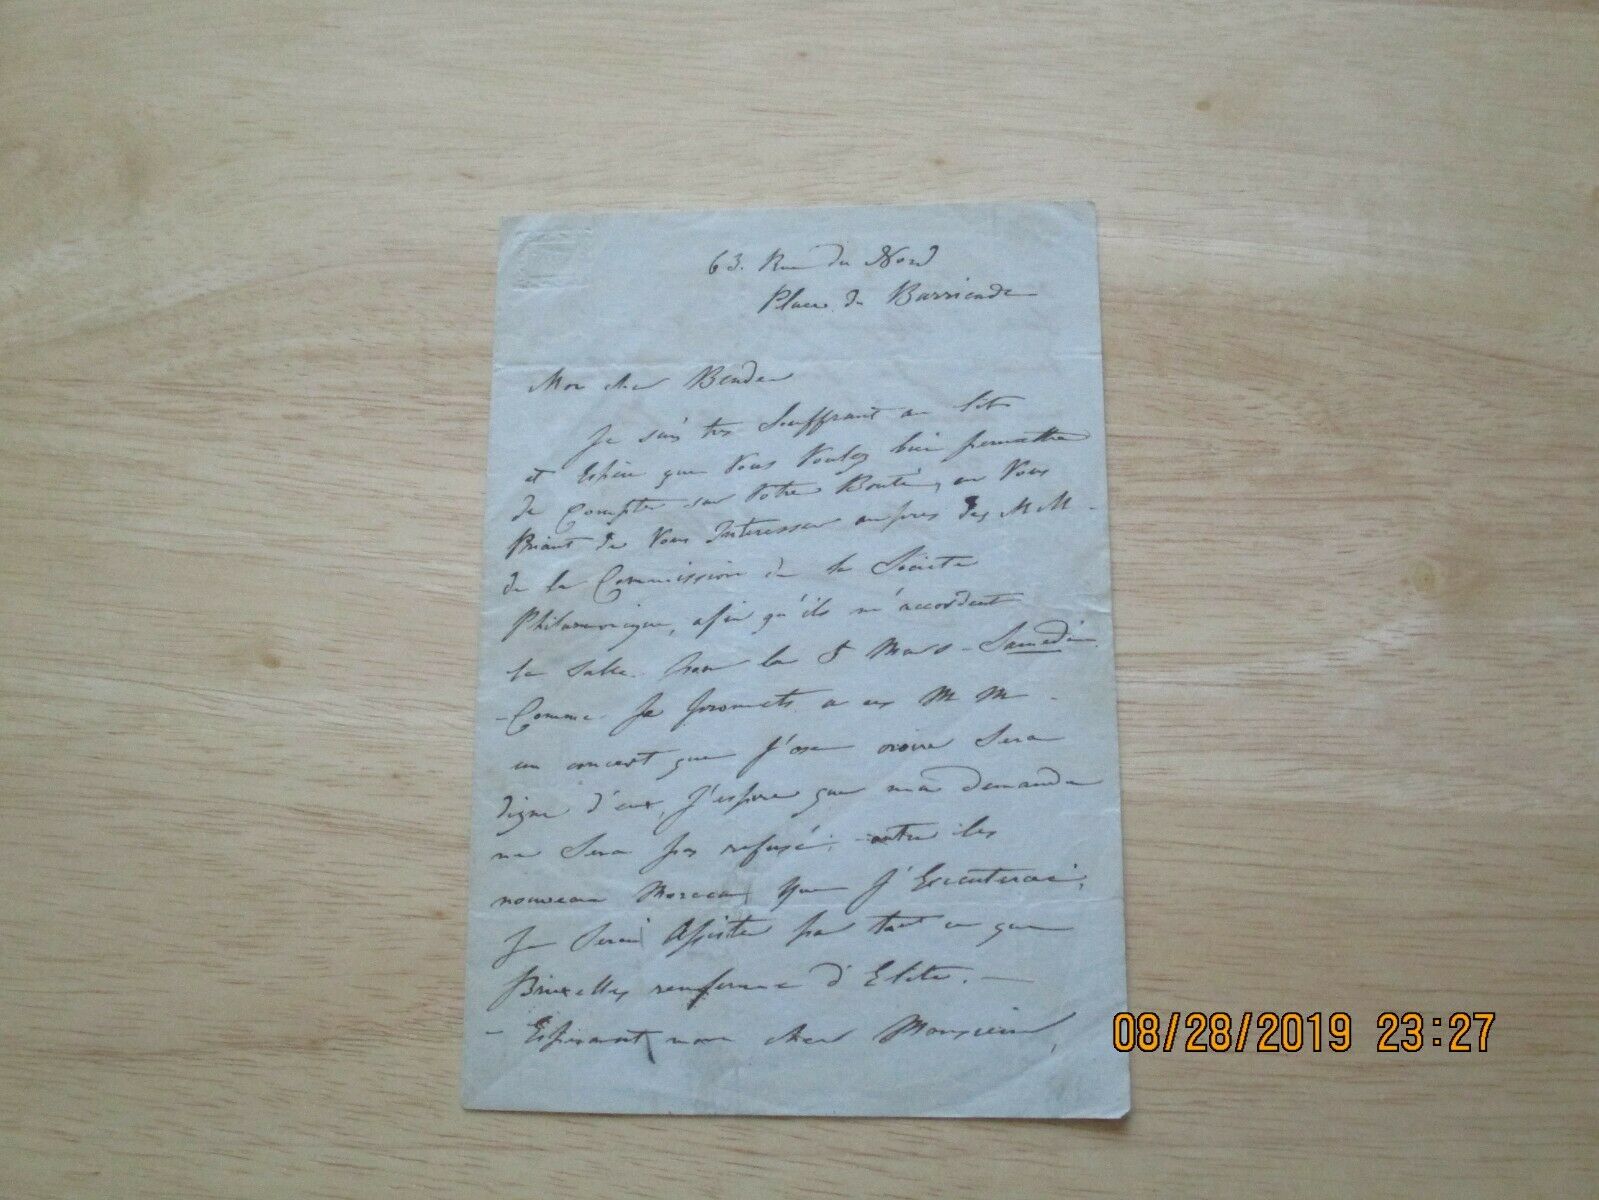 63. Rue du Nord
Place du Barricade
Mon cher Bender
Je suis tres Souffrant au lit
et Espere que Vous Voulez bien permettre
de Compter sur Votre Bonté, en Vous
Priant de Vous Interesser aupres des M M -
de la Commission de la Société
Philarmonique, afin qu'ils m'accordent
la Salle pour le 8 Mars - Samedi
- Comme Je promets a ces M M -
un concert que J'ose croire Sera
digne d'eux, J'espere que ma demande
ne Sera pas refusé, - outre les
nouveau Morceau que J'Executerai,
Je Serai Assisté par tout ce que
Bruxelles renferme d'Elite. -
- Esperant mon cher Monsieur,
08/28/2019 23:27